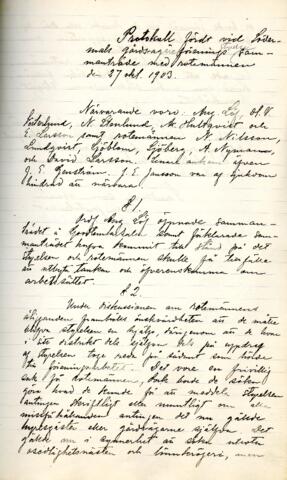 Protokoll fördt vid Söder-
malms gårdsegareförenings sam-
manträde med rotemännen
den 27 okt. 1903.
Närvarande voro: Aug. Löf, O. V.
Vesterlund, N. Stenlund, A. Hultqvist och
E. Larsson samt rotemännen N. Nilsson,
Lundqvist, Sjöblom, Sjöberg, A. Nyman
och David Larsson. Senare ankom även
J. E. Jansson var af sjukdom
hindrad att närvara.
§ 1.
Ordf. Aug. Löf öppnade samman-
trädet i samt förklarade sam-
manträdet hafva kommit till stånd på det
styrelsen och rotemännen skulle få tillfälle
att utbyta tankar och öfverenskomma om
arbetssättet.
§ 2.
Under diskussionen om rotemännens
åligganden framhölls önskvärdheten att de måtte
styrelsen en hjälp därigenom att de hvar
i sitt distrikt dels själfva dels på uppdrag
af styrelsen toge reda på sådant som hörde
till föreningsarbetet. Det vore en frivillig
sak för rotemännen, dock borde de söka
göra hvad de kunde för att meddela styrelsen
antingen skriftligt eller muntligt om alla
missförhållanden antingen det nu gällde
hyresgäster eller gårdsägarne själfva. Det
gällde nu i synnerhet att söka utrota
osedlighetsnästen och lönnkrögeri, men